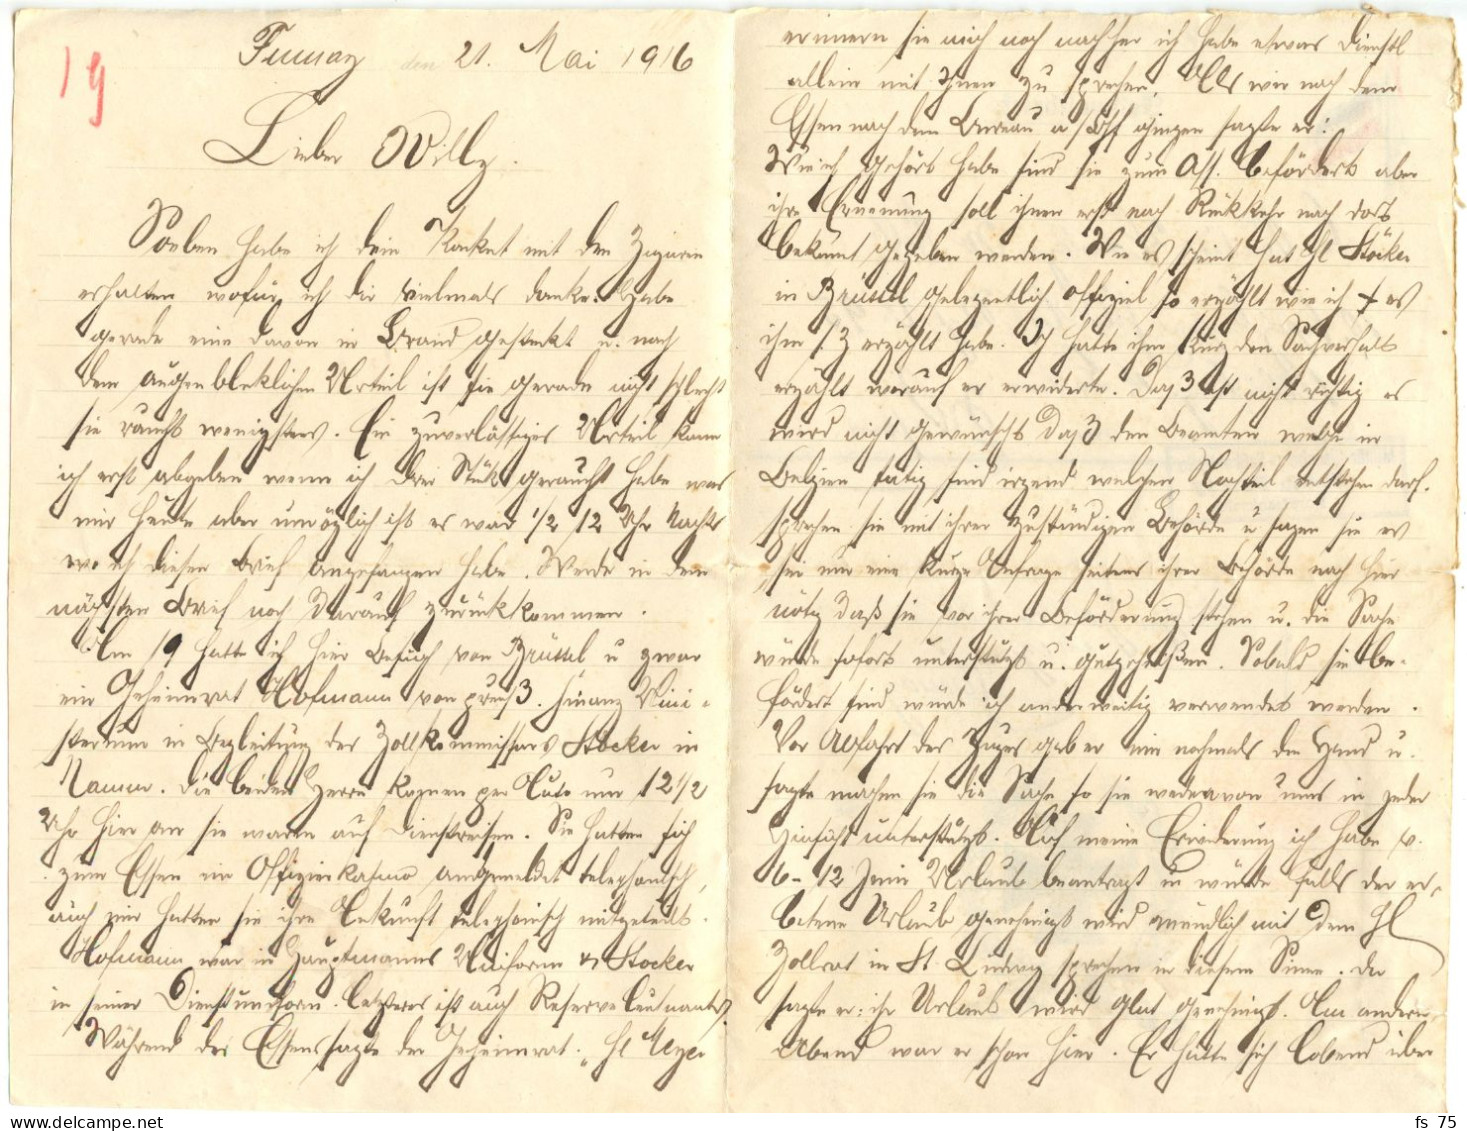 19
Fumay den 21. Mai 1916
Lieber Willy.
Soeben habe ich dein Packet mit den Zigarren
erhalten wofür ich dir vielmals danke. Habe
gerade eine davon in Brand gesteckt u. nach
dem augenbliklichen Urteil ist sie gerade nicht schlecht
sie raucht wenigstens. Ein zuverlässiges Urteil kann
ich erst abgeben wenn ich drei Stük geraucht habe was
mir heute aber unmöglich ist es war 1/2 12 Uhr Nachts
wo ich diesen Brief angefangen habe. Werde in dem
nächsten Brief noch darauf zurückkommen.
Am 19 hatte ich hier Besuch von Brüssel u zwar
ein Geheimrat Hofmann vom preuß. Finanz Mini-
sterium in Begleitung des Zollkommissars Stocker in
Namur. Die beiden Herrn kamen per Auto um 12 1/2
Uhr hier an sie waren auf Dienstreisen. Sie hatten sich
zum Essen im Offizierkasino angemeldet telephonisch,
auch mir hatten sie ihre Ankunft telephonisch mitgeteilt.
Hofmann war in Hauptmanns Uniform u. Stocker
in seiner Dienstuniform. letzterer ist auch Reserveleutnant.
Während des Essens sagte der Geheimrat: „Hl Meyer
erinnern sie mich noch nachher ich habe etwas dienstl
allein mit Ihnen zu sprechen. Als wir nach dem
Essen nach dem Bureau gingen sagte er:
Wie ich gehört habe sind sie zum Ass. befördert aber
ihre Ernennung soll ihnen erst nach Rückkehr nach dort
bekannt gegeben werden. Wie es scheint hat Hl Stöcker
in Brüssel gelegentlich offiziel so erzählt wie ich es
ihm s Z erzählt habe. Ich hatte ihm kurz den Sachverhalt
erzählt worauf er erwiderte. Das ist nicht richtig es
wird nicht gewünscht daß den Beamten welche in
Belgien tätig sind irgend welcher Nachteil entstehen darf.
sprechen sie mit ihrer zuständigen Behörde u sagen sie es
sei nur eine kurze Anfrage seitens ihrer Behörde nach hier
nötig daß sie vor ihrer Beförderung stehen u. die Sache
würde sofort unterstützt u. gutgeheißen. Sobald sie be-
fördert sind würde ich anderweitig verwendet werden.
Vor Abfahrt des Zuges gab er mir nochmals die Hand u.
sagte machen sie die Sache so sie werden von uns in jeder
Hinsicht unterstützt. Auf meine Erwiderung ich habe v.
6-12 Juni Urlaub beantragt u würde falls der er-
betene Urlaub genehmigt wird mündlich mit dem Hl
Zollrat in St Ludwig sprechen in diesem Sinne. Da
sagte er: ihr Urlaub wird glat genehmigt. Am andern
Abend war er schon hier. Er hatte sich lobend über
fs 75